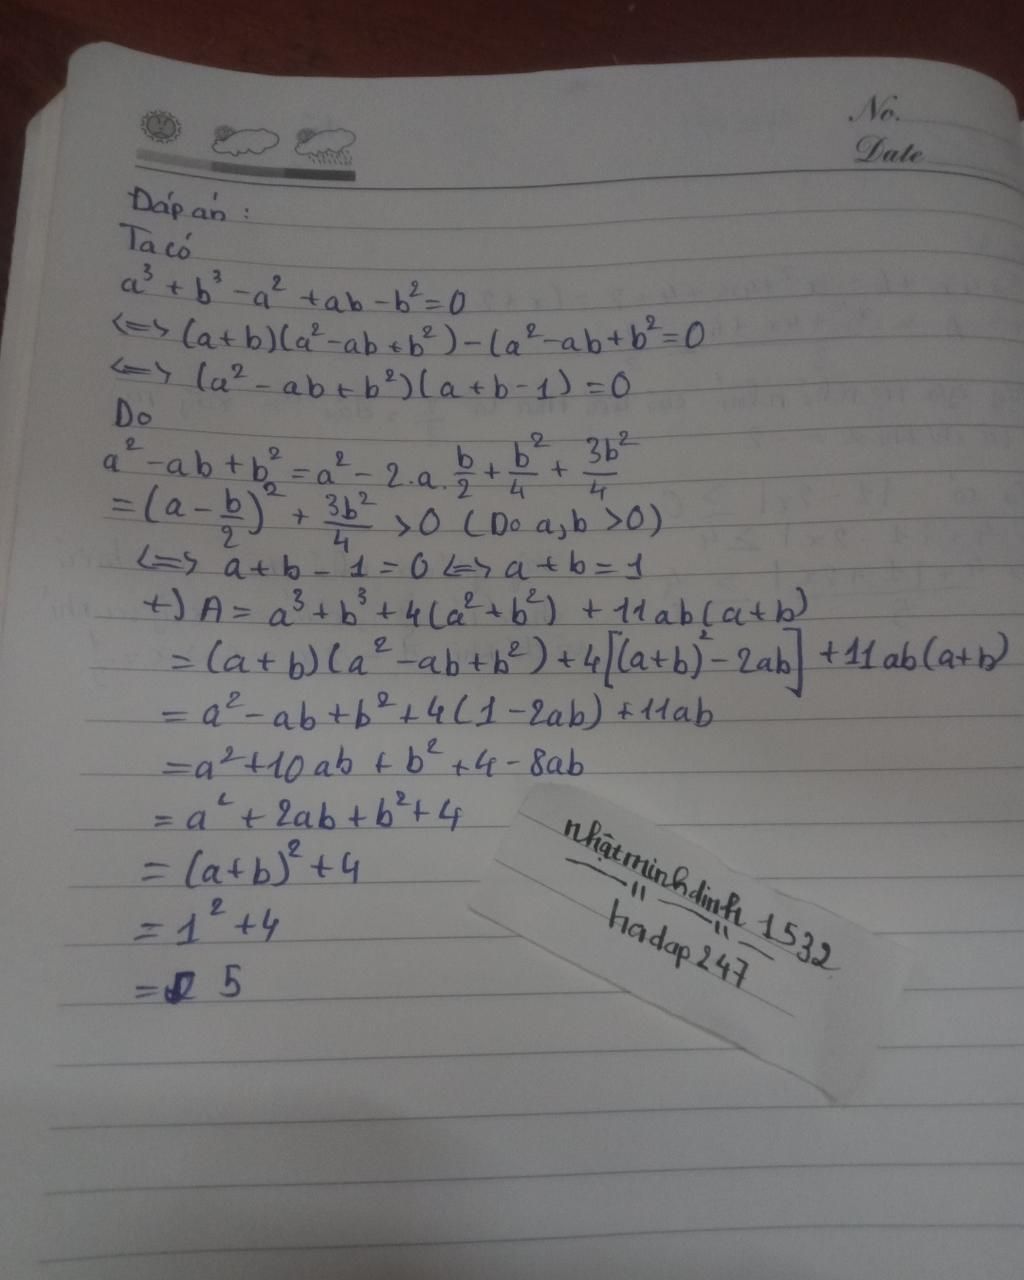 No.
Date
Đáp án :
Ta có
a³ + b³ - a² + ab - b² = 0
<=> (a+b)(a² - ab + b²) - (a² - ab + b² = 0
<=> (a² - ab + b²)(a + b - 1) = 0
Do
a² - ab + b² = a² - 2.a.b/2 + b²/4 + 3b²/4
= (a - b/2)² + 3b²/4 > 0 (Do a,b > 0)
<=> a + b - 1 = 0 <=> a + b = 1
+) A = a³ + b³ + 4(a² + b²) + 11ab(a+b)
= (a+b)(a² - ab + b²) + 4[(a+b)² - 2ab] + 11ab(a+b)
= a² - ab + b² + 4(1 - 2ab) + 11ab
= a² + 10ab + b² + 4 - 8ab
= a² + 2ab + b² + 4
= (a+b)² + 4
= 1² + 4
= 5
nhậtminhdinh 1532
hadap247